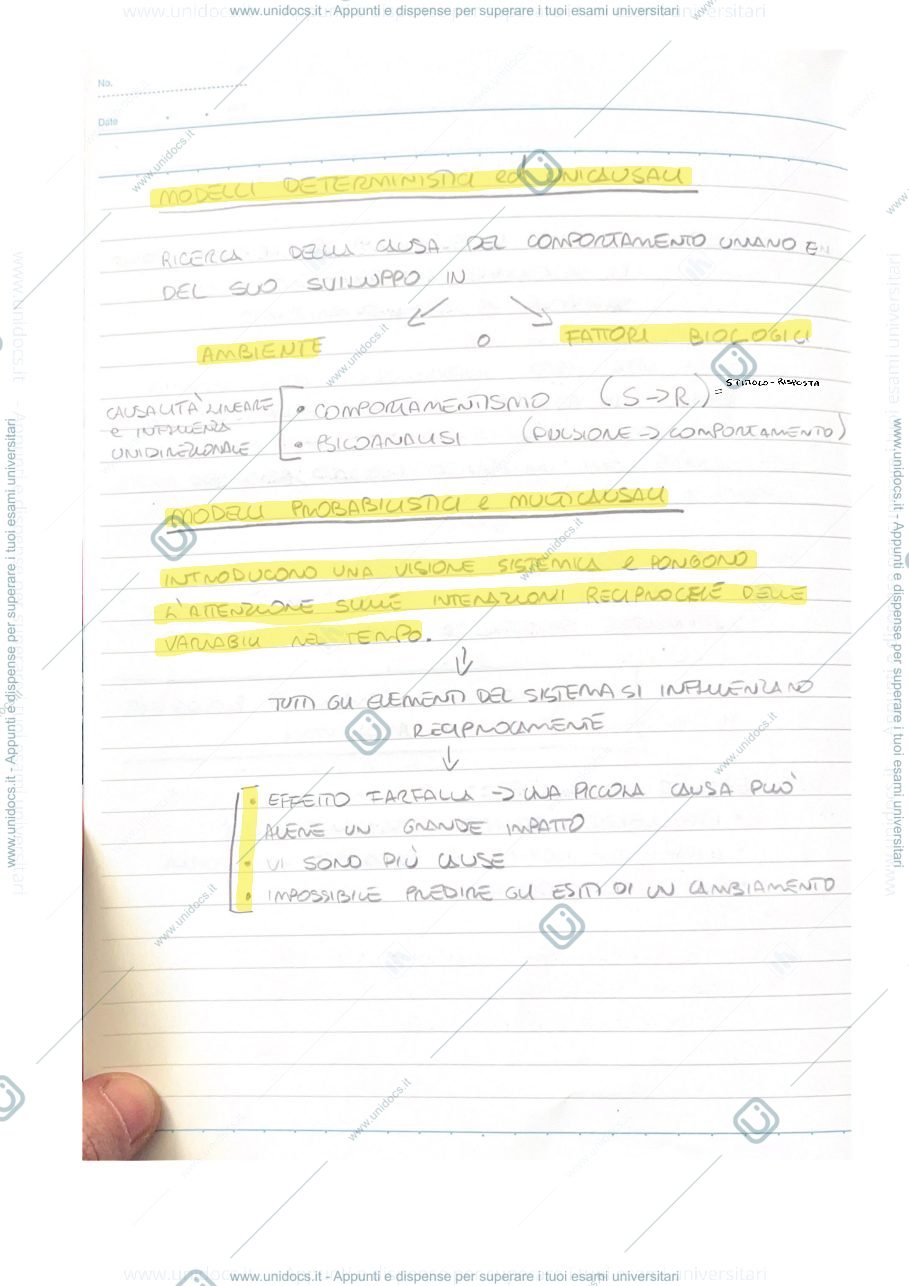 www.unidocs.it - Appunti e dispense per superare i tuoi esami universitari
No.
Date
MODELLI DETERMINISTICI ed UNICAUSALI
RICERCA DELLA CAUSA DEL COMPORTAMENTO UMANO E
DEL SUO SVILUPPO IN
AMBIENTE o FATTORI BIOLOGICI
CAUSALITÀ LINEARE
e INFLUENZA
UNIDIREZIONALE
• COMPORTAMENTISMO (S->R) = STIMOLO - RISPOSTA
• PSICOANALISI (PULSIONE -> COMPORTAMENTO)
MODELLI PROBABILISTICI e MULTICAUSALI
INTRODUCONO UNA VISIONE SISTEMICA e PONGONO
L'ATTENZIONE SULLE INTERAZIONI RECIPROCHE DELLE
VARIABILI NEL TEMPO.
TUTTI GLI ELEMENTI DEL SISTEMA SI INFLUENZANO
RECIPROCAMENTE
• EFFETTO FARFALLA -> UNA PICCOLA CAUSA PUÒ
AVERE UN GRANDE IMPATTO
• VI SONO PIÙ CAUSE
• IMPOSSIBILE PREDIRE GLI ESITI DI UN CAMBIAMENTO
www.unidocs.it - Appunti e dispense per superare i tuoi esami universitari
www.unidocs.it - Appunti e dispense per superare i tuoi esami universitari
www.unidocs.it - Appunti e dispense per superare i tuoi esami universitari